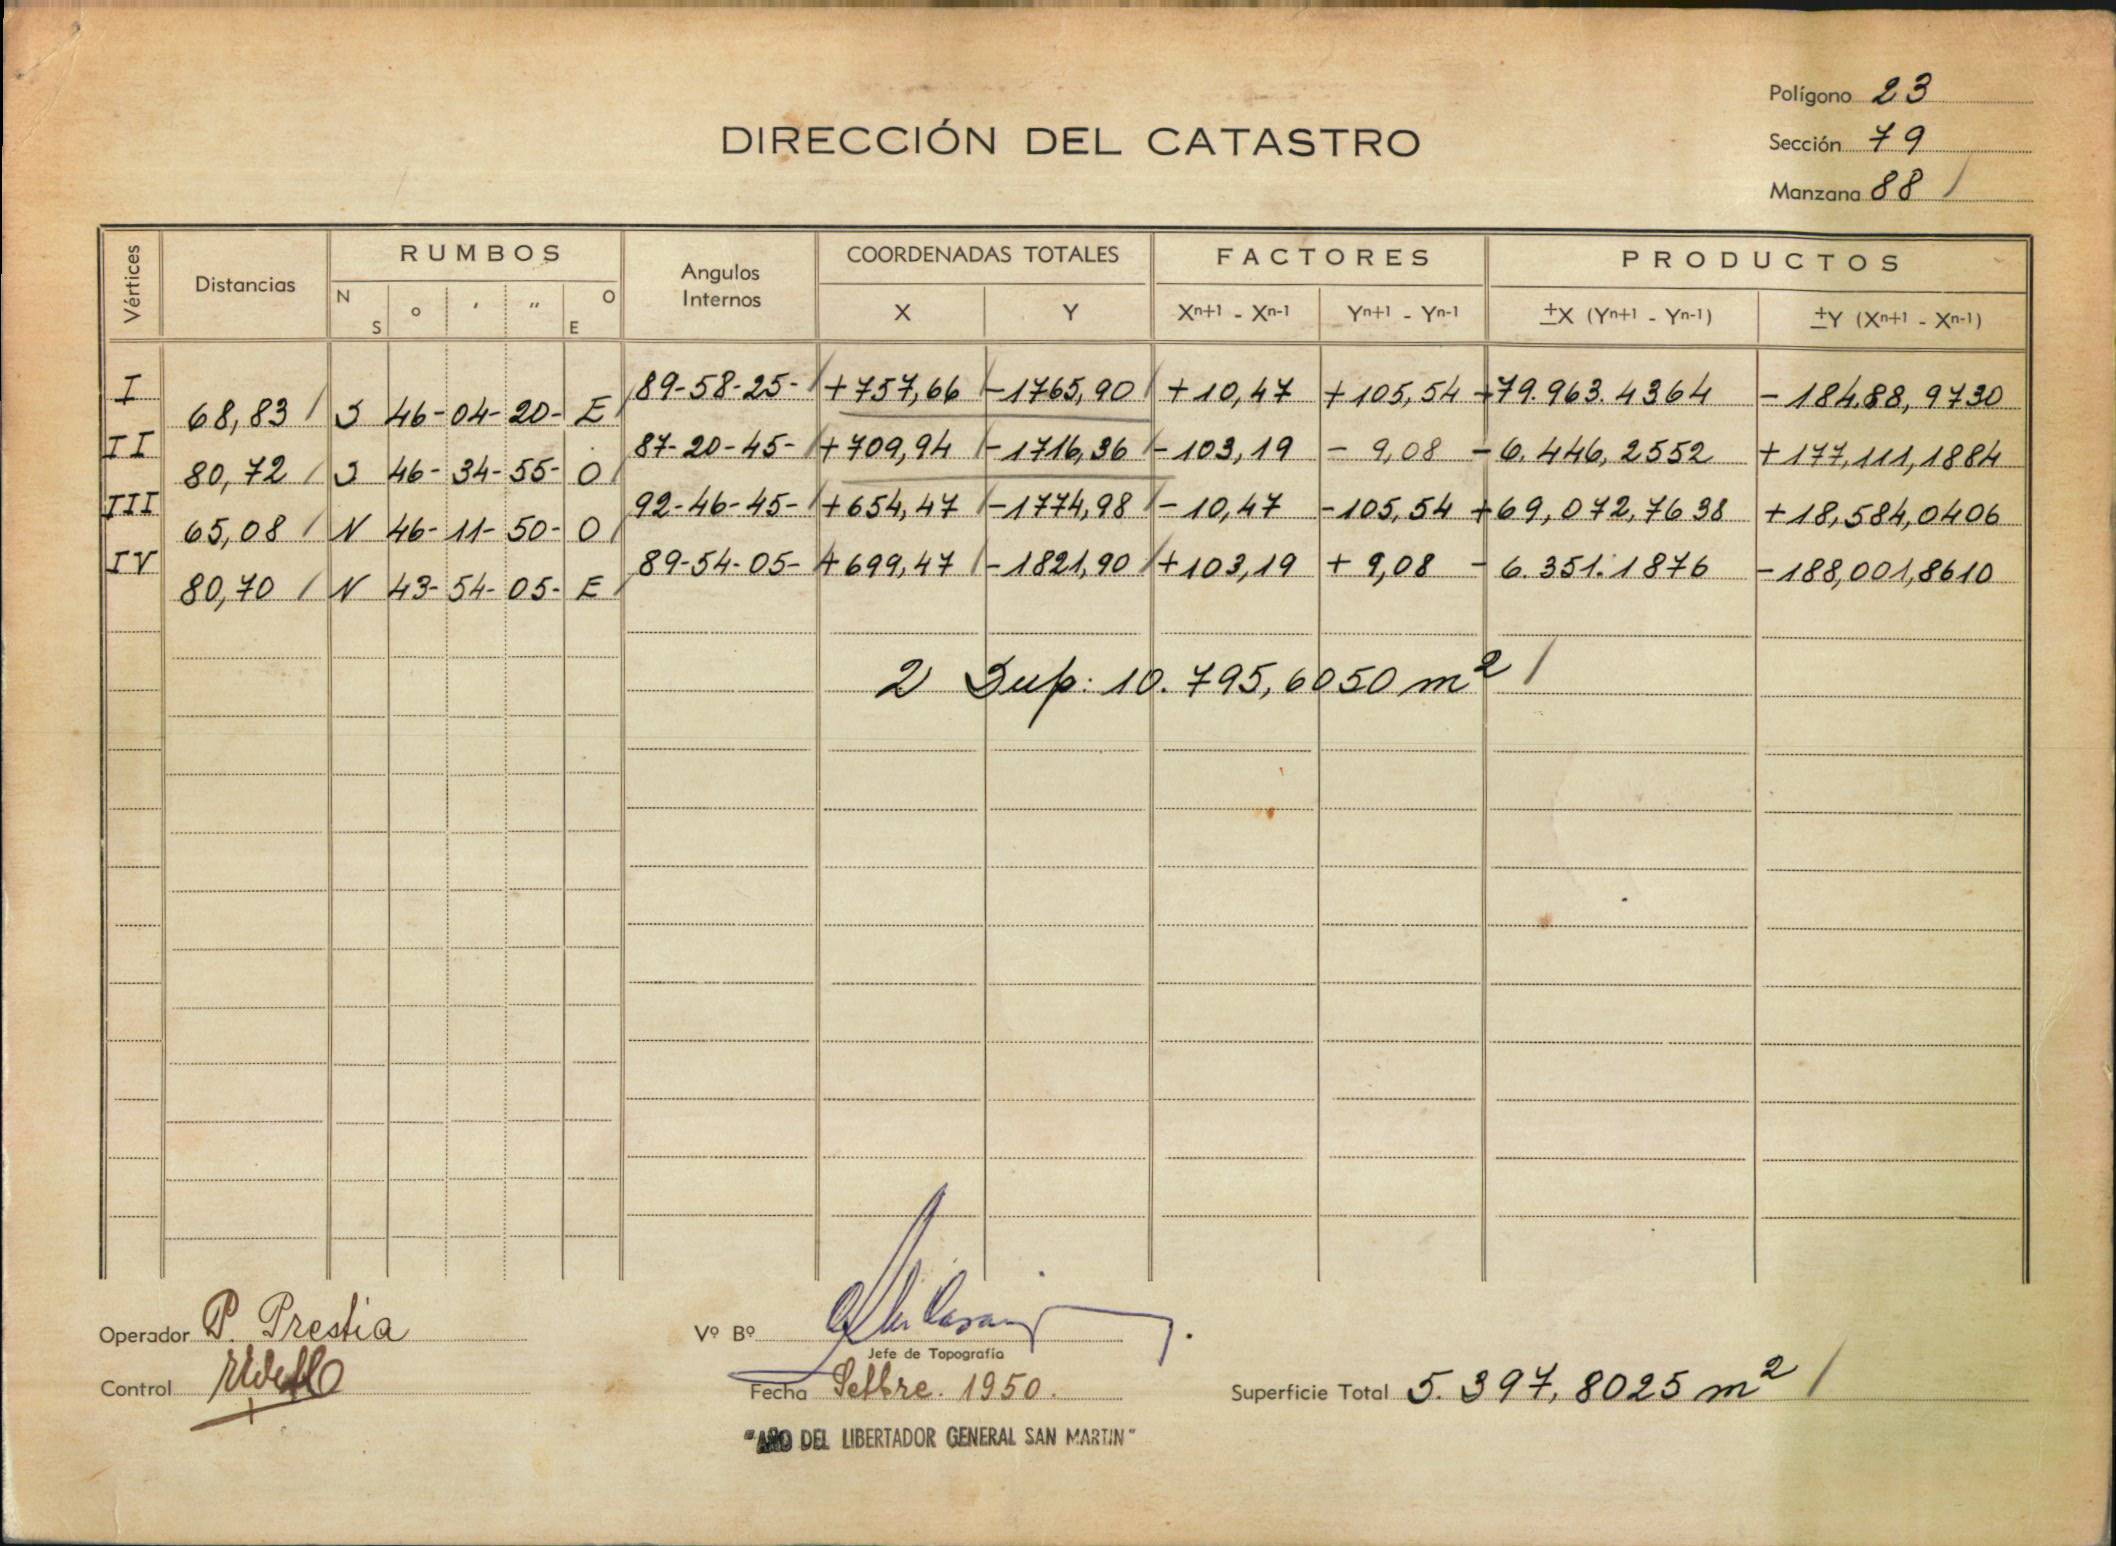 Polígono 23
DIRECCIÓN DEL CATASTRO
Sección 79
Manzana 88 /
Vértices
Distancias
RUMBOS
N S ° ' " O E
Angulos Internos
COORDENADAS TOTALES
X Y
FACTORES
Xn+1 - Xn-1 Yn+1 - Yn-1
PRODUCTOS
±X (Yn+1 - Yn-1) ±Y (Xn+1 - Xn-1)
I 89-58-25- / +757,66 / -1765,90 / +10,47 +105,54 +79.963.4364 -18488,9730
68,83 / S 46- 04- 20- E /
II 87-20-45- / +709,94 / -1716,36 / -103,19 - 9,08 - 6.446,2552 +177,111,1884
80,72 / S 46- 34- 55- O /
III 92-46-45- / +654,47 / -1774,98 / -10,47 -105,54 +69,072,7638 +18,584,0406
65,08 / N 46- 11- 50- O /
IV 89-54-05- / +699,47 / -1821,90 / +103,19 + 9,08 - 6.351.1876 -188,001,8610
80,70 / N 43- 54- 05- E /
2 Sup: 10.795,6050 m2 /
Operador P. Prestia
Vº Bº
Jefe de Topografía
Control
Fecha Setbre. 1950.
Superficie Total 5.397,8025 m2 /
"AÑO DEL LIBERTADOR GENERAL SAN MARTIN"